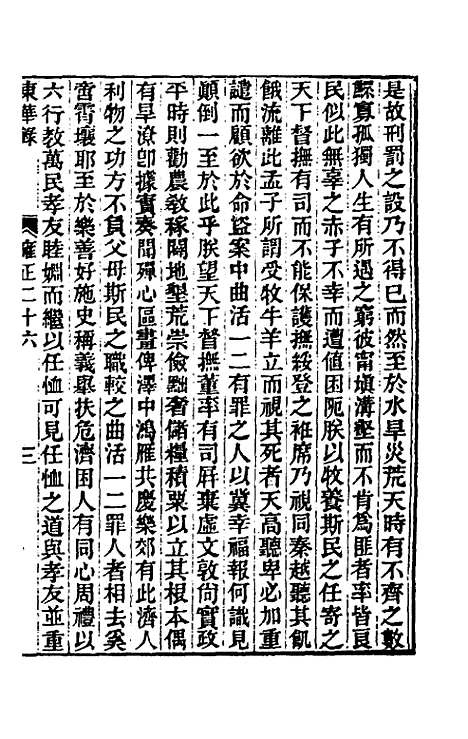 是故刑罰之設乃不得已而然至於水旱災荒天時有不齊之數
鰥寡孤獨人生有所遇之窮彼甯塡溝壑而不肯爲匪者率皆良
民似此無辜之赤子不幸而遭値困阨朕以牧養斯民之任寄之
天下督撫有司而不能保護撫綏登之袵席乃視同秦越聽其飢
餓流離此孟子所謂受牧牛羊立而視其死者天高聽卑必加重
譴而顧欲於命盜案中曲活一二有罪之人以冀幸福報何識見
顚倒一至於此乎朕望天下督撫董率有司屛棄虛文敦尙實政
平時則勸農敎稼闢地墾荒崇儉黜奢儲糧積粟以立其根本偶
有旱潦卽據實奏聞殫心區畫俾澤中鴻雁共慶樂郊有此濟人
利物之功方不負父母斯民之職較之曲活一二罪人者相去奚
啻霄壤耶至於樂善好施史稱義舉扶危濟困人有同心周禮以
六行敎萬民孝友睦婣而繼以任恤可見任恤之道與孝友並重
東華錄
雍正二十六
三